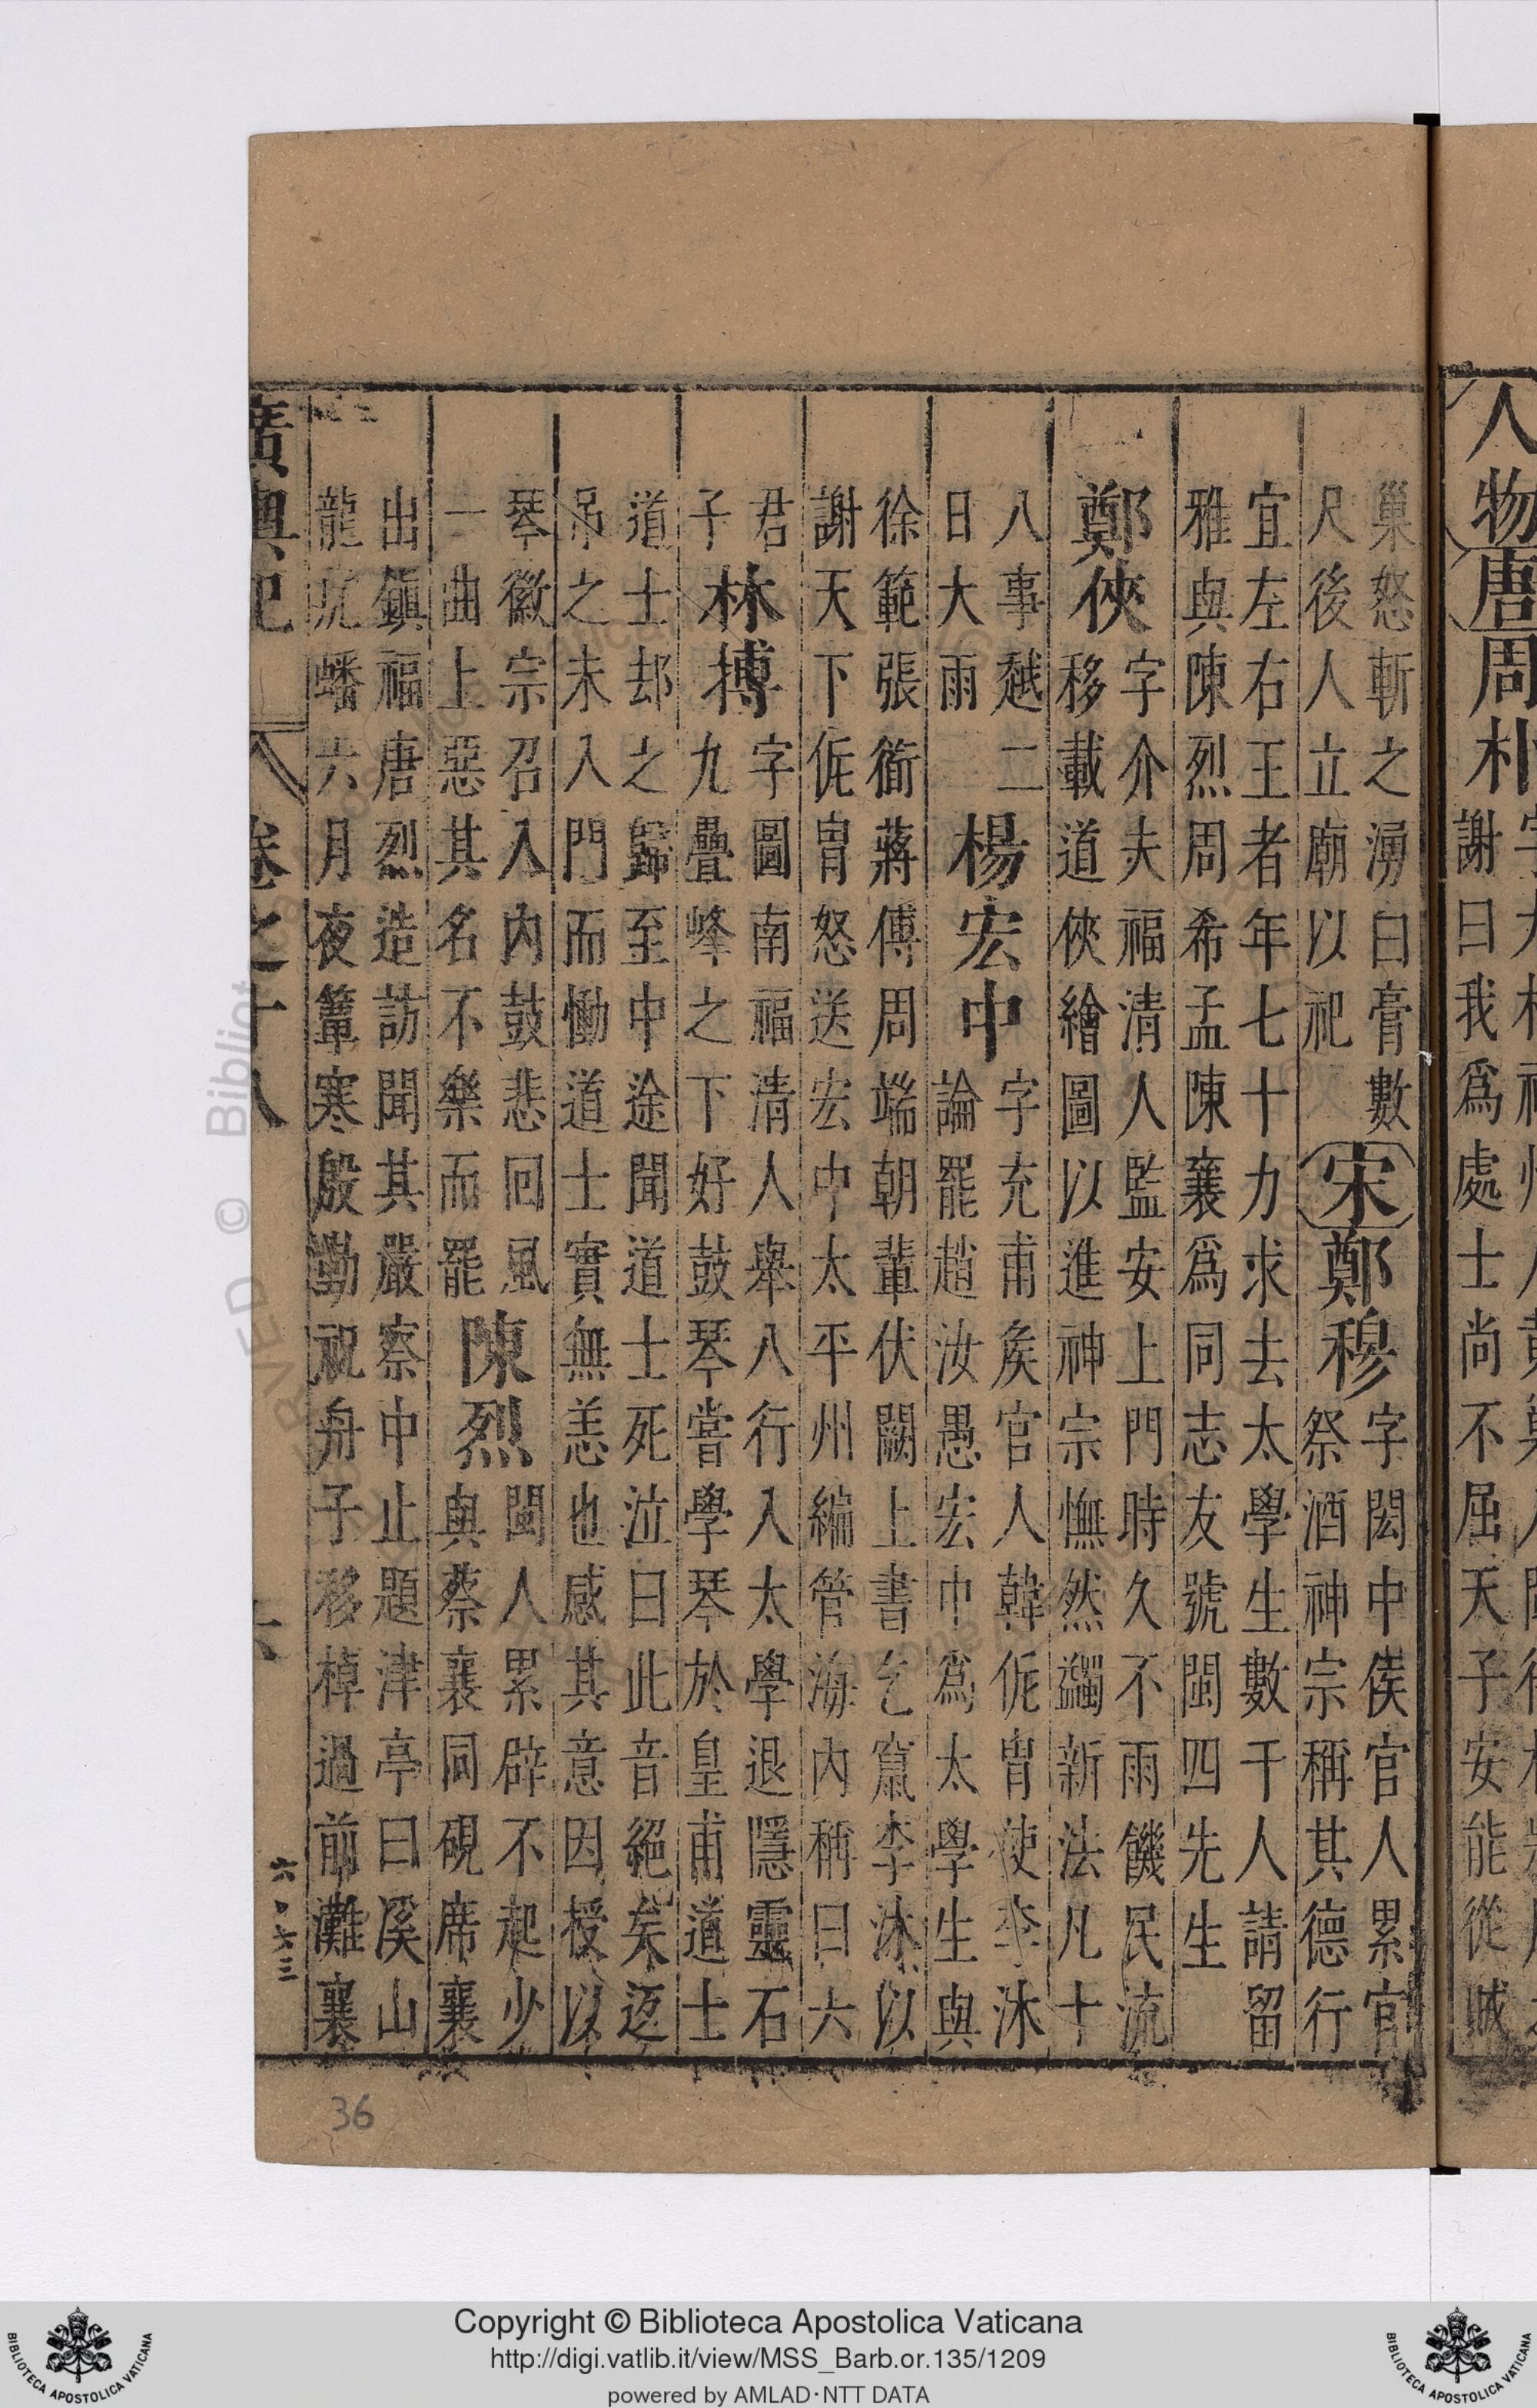 人物唐周朴
謝曰我爲處士尚不屈天子安能從賊
巢怒斬之湧白膏數
尺後人立廟以祀
宋鄭穆
字閎中侯官人累官
祭酒神宗稱其德行
宜左右王者年七十力求去太學生數千人請留
雅與陳烈周希孟陳襄爲同志友號閩四先生
鄭俠
字介夫福清人監安上門時久不雨饑民流
移載道俠繪圖以進神宗憮然蠲新法凡十
八事越二
日大雨
楊宏中
字充甫矦官人韓侂胄使李沐
論罷趙汝愚宏中爲太學生與
徐範張衜蔣傅周端朝輩伏闕上書乞竄李沐以
謝天下侂胄怒送宏中太平州編管海內稱曰六
君
子
林摶
字圖南福清人舉八行入太學退隱靈石
九疊峰之下好鼓琴嘗學琴於皇甫道士
道士刦之歸至中途聞道士死泣曰此音絕矣返
吊之未入門而慟道士實無恙也感其意因授以
琴徽宗召入內鼓悲回風
一曲上惡其名不樂而罷
陳烈
閩人累辟不起少
與蔡襄同硯席襄
出鎮福唐烈造訪聞其嚴察中止題津亭曰溪山
龍虎蟠六月夜篝寒殷勤祝舟子移棹過前灘襄
廣輿記
卷之十八
六
36
Copyright © Biblioteca Apostolica Vaticana
http://digi.vatlib.it/view/MSS_Barb.or.135/1209
powered by AMLAD·NTT DATA
BIBLIOTECA APOSTOLICA VATICANA
BIBLIOTECA APOSTOLICA VATICANA